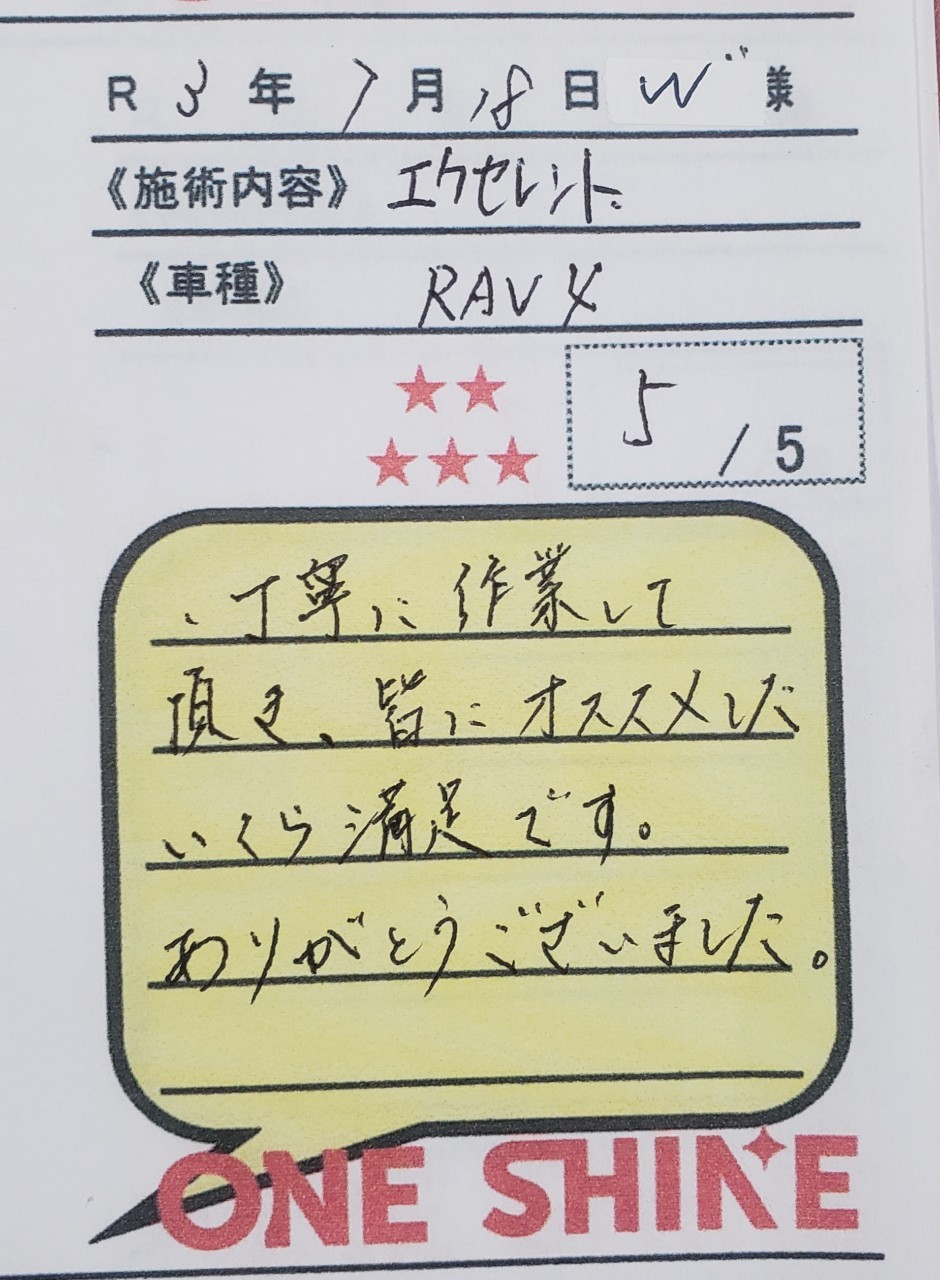 R 3 年 7 月 18 日 W 様
《施術内容》 エクセレント
《車種》 RAV4
5 / 5
丁寧に作業して
頂き、皆にオススメした
いくら満足です。
ありがとうございました。
ONE SHINE